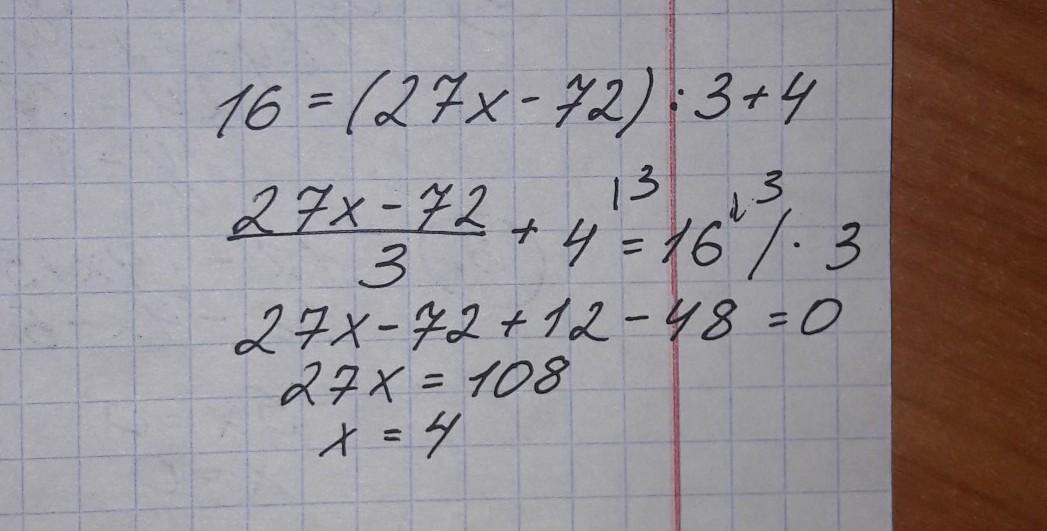 16 = (27x - 72) : 3 + 4
(27x - 72)/3 + 4 |3 = 16 |3 / · 3
27x - 72 + 12 - 48 = 0
27x = 108
x = 4